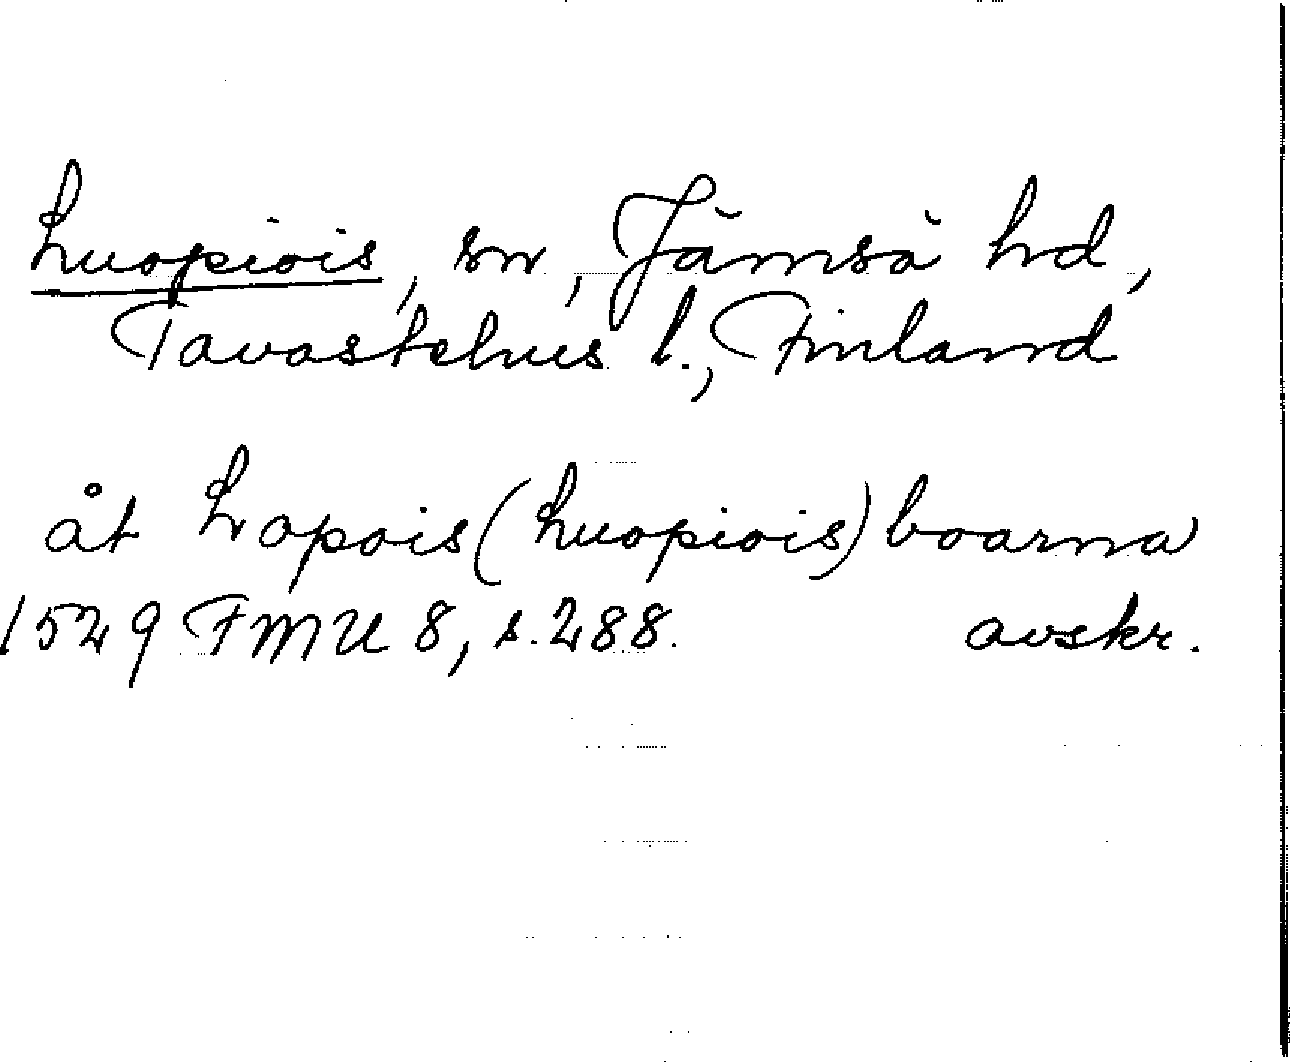 Luopiois, sn, Jämsä hd,
Tavastehus l., Finland
åt Lopois (Luopiois) boarna
1529 FMU 8, s. 288. avskr.